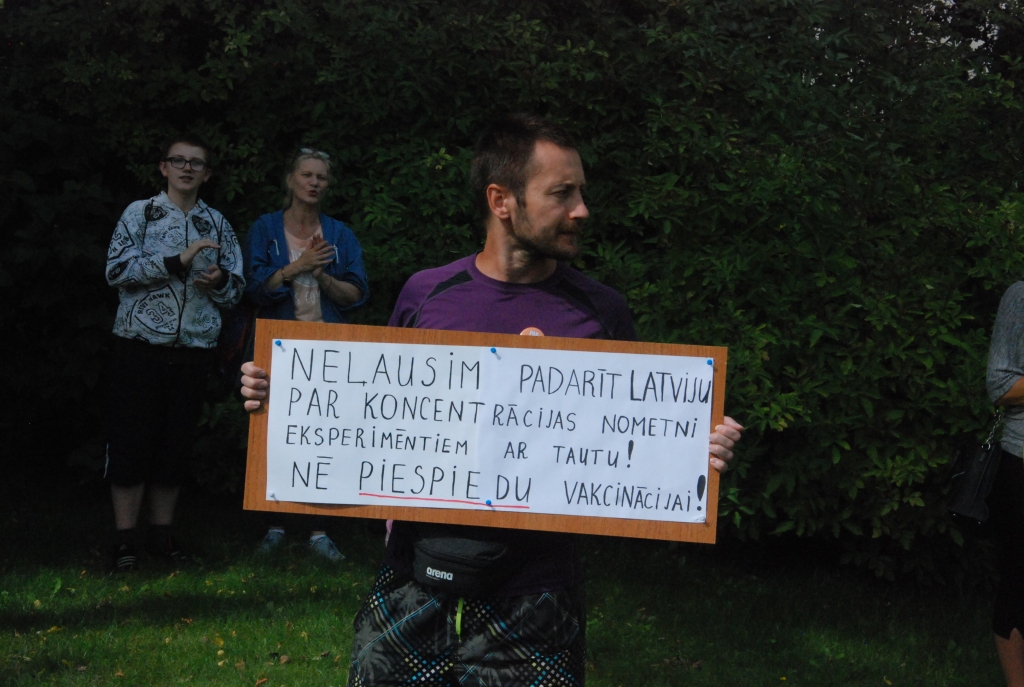 NEĻAUSIM PADARĪT LATVIJU
PAR KONCENTRĀCIJAS NOMETNI
EKSPERIMĒNTIEM AR TAUTU!
NĒ PIESPIEDU VAKCINĀCIJAI!
arena